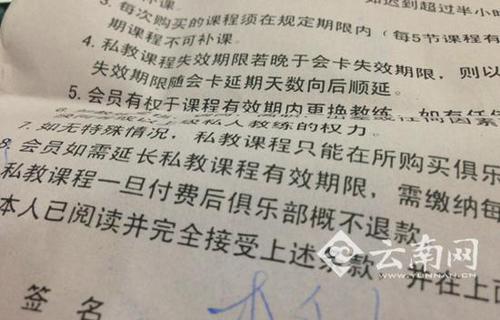 补课。
如迟到超过半小时
3. 每次购买的课程须在规定期限内（每5节课程有
期课程不可补课。
4. 私教课程失效期限若晚于会卡失效期限，则以
失效期限随会卡延期天数向后顺延。
5. 会员有权于课程有效期内更换教练，如有任
因素
级私人教练的权力。
7. 如无特殊情况，私教课程只能在所购买俱乐
8. 会员如需延长私教课程有效期限，需缴纳每
私教课程一旦付费后俱乐部概不退款
本人已阅读并完全接受上述条款，并在上面
签名
云南网
WWW.YUNNAN.CN